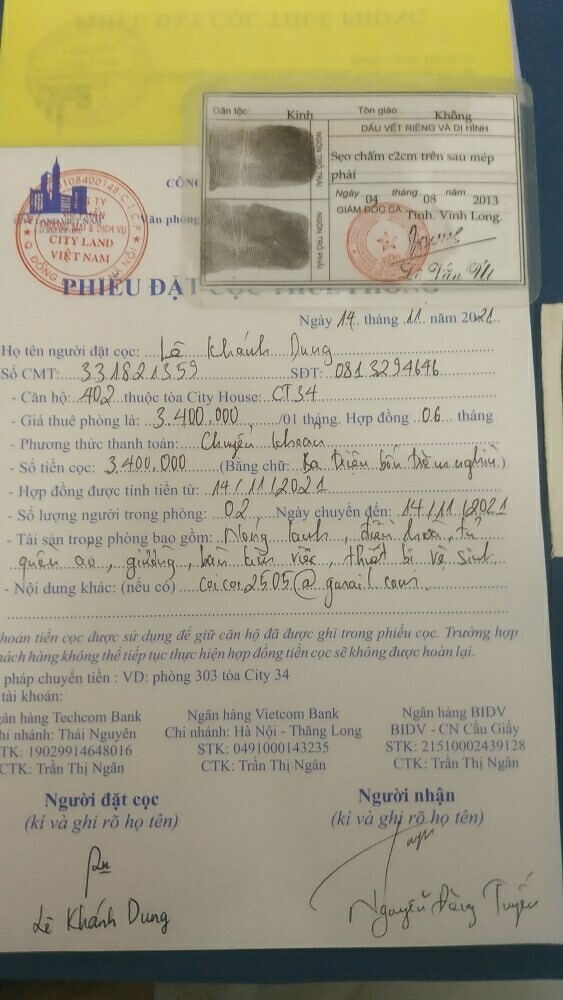 Dân tộc: Kinh Tôn giáo: Không
DẤU VẾT RIÊNG VÀ DỊ HÌNH
NGÓN TRỎ TRÁI
Sẹo chấm c2cm trên sau mép
phải
Ngày 04 tháng 08 năm 2013
GIÁM ĐỐC CA Tỉnh. Vĩnh Long.
NGÓN TRỎ PHẢI
CÔNG
Văn phòng
CITY LAND
VIỆT NAM
PHIẾU ĐẶT CỌC THUÊ PHÒNG
Ngày 14 tháng 11 năm 2021
Họ tên người đặt cọc: Lê Khánh Dung
Số CMT: 331821359 SĐT: 0813294646
- Căn hộ: 402 thuộc tòa City House: CT34
- Giá thuê phòng là: 3.400.000 /01 tháng. Hợp đồng 06 tháng
- Phương thức thanh toán: Chuyển khoản
- Số tiền cọc: 3.400.000 (Bằng chữ: Ba triệu bốn trăm nghìn.)
- Hợp đồng được tính tiền từ: 14/11/2021
- Số lượng người trong phòng: 02 Ngày chuyển đến: 14/11/2021
- Tài sản trong phòng bao gồm: Nóng lạnh, điều hòa, tủ
quần áo, giường, bàn làm việc, thiết bị vệ sinh
- Nội dung khác: (nếu có) coicoi2505@gmail.com
hoản tiền cọc được sử dụng để giữ căn hộ đã được ghi trong phiếu cọc. Trường hợp
hách hàng không thể tiếp tục thực hiện hợp đồng tiền cọc sẽ không được hoàn lại.
pháp chuyển tiền : VD: phòng 303 tòa City 34
tài khoản:
gân hàng Techcom Bank Ngân hàng Vietcom Bank Ngân hàng BIDV
hi nhánh: Thái Nguyên Chi nhánh: Hà Nội - Thăng Long BIDV - CN Cầu Giấy
STK: 19029914648016 STK: 0491000143235 STK: 21510002439128
CTK: Trần Thị Ngân CTK: Trần Thị Ngân CTK: Trần Thị Ngân
Người đặt cọc Người nhận
(kí và ghi rõ họ tên) (kí và ghi rõ họ tên)
Lê Khánh Dung Nguyễn Đăng Tuyến